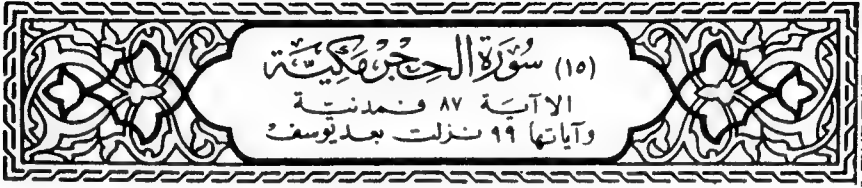 (١٥) سُورَةُ الحِجْرِ مَكِّيَّة
الا آية ٨٧ فمدنية
وآياتها ٩٩ نزلت بعد يوسف